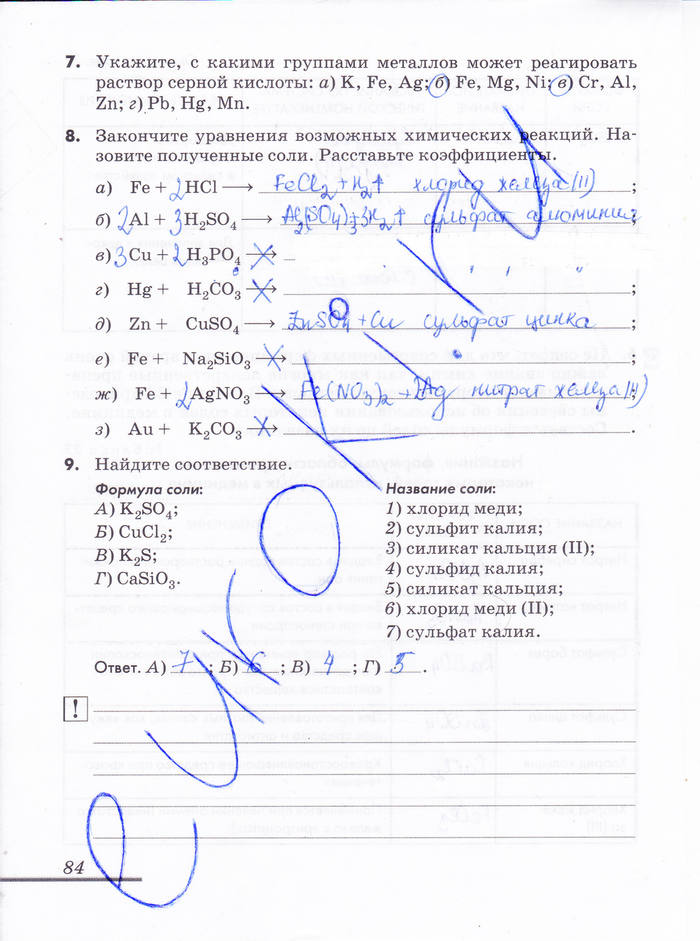 7. Укажите, с какими группами металлов может реагировать
раствор серной кислоты: а) K, Fe, Ag; б) Fe, Mg, Ni; в) Cr, Al,
Zn; г) Pb, Hg, Mn.
8. Закончите уравнения возможных химических реакций. На-
зовите полученные соли. Расставьте коэффициенты.
а) Fe + 2HCl → FeCl2 + H2↑ хлорид железа (II) ;
б) 2Al + 3H2SO4 → Al2(SO4)3+3H2↑ сульфат алюминия
в) 3Cu + 2H3PO4 →
г) Hg + H2CO3 → ;
д) Zn + CuSO4 → ZnSO4 + Cu сульфат цинка ;
е) Fe + Na2SiO3 → ;
ж) Fe + 2AgNO3 → Fe(NO3)2 + 2Ag нитрат железа (II) ;
з) Au + K2CO3 → .
9. Найдите соответствие.
Формула соли: Название соли:
А) K2SO4; 1) хлорид меди;
Б) CuCl2; 2) сульфит калия;
В) K2S; 3) силикат кальция (II);
Г) CaSiO3. 4) сульфид калия;
5) силикат кальция;
6) хлорид меди (II);
7) сульфат калия.
Ответ. А) 7 ; Б) 6 ; В) 4 ; Г) 5 .
!
84